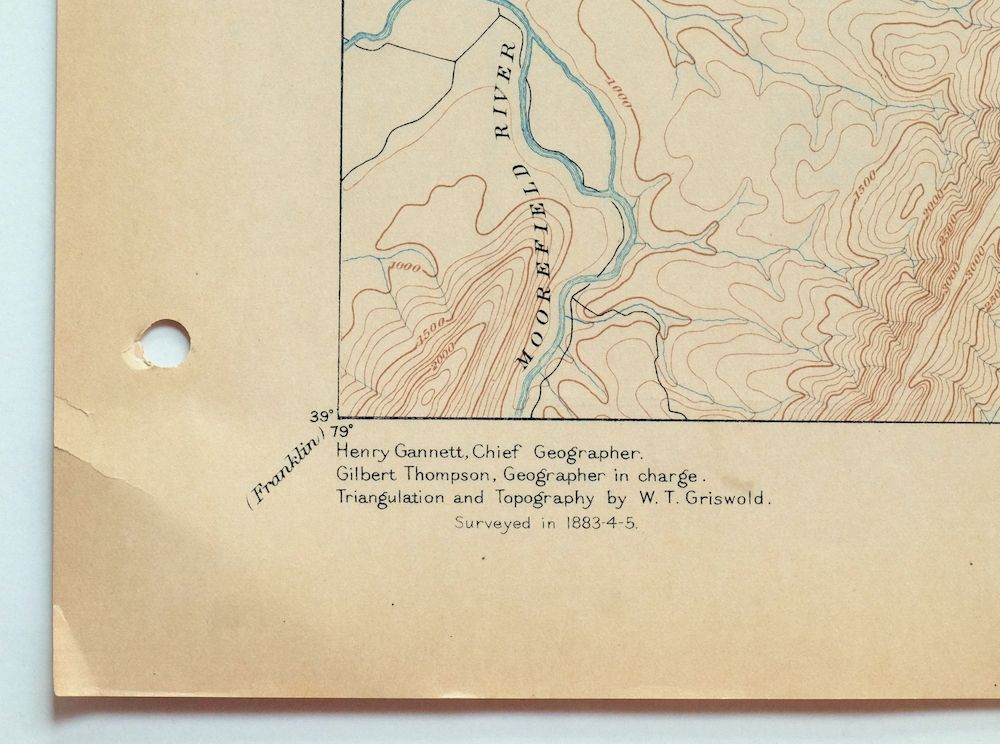 RIVER
1000
MOOREFIELD
1500
2000
2500
3000
3000
1000
1500
2000
39°
79°
(Franklin)
Henry Gannett, Chief Geographer.
Gilbert Thompson, Geographer in charge.
Triangulation and Topography by W. T. Griswold.
Surveyed in 1883-4-5.